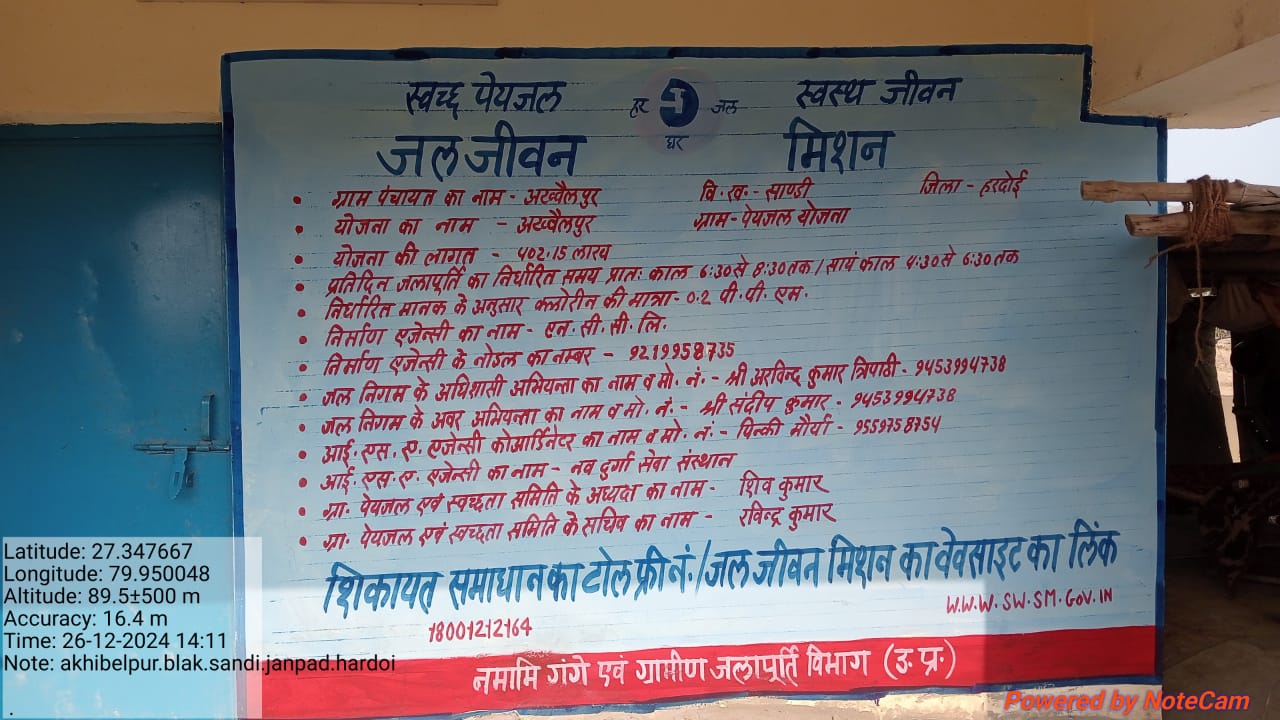 स्वच्छ पेयजल हर घर जल स्वस्थ जीवन
जल जीवन मिशन
• ग्राम पंचायत का नाम - अख्बैलपुर वि. ख. - साण्डी जिला - हरदोई
• योजना का नाम - अख्बैलपुर ग्राम - पेयजल योजना
• योजना की लागत - ५०२.15 लाख
• प्रतिदिन जलापूर्ति का निर्धारित समय प्रातः काल 6:30 से 8:30 तक / सायं काल ४:30 से 6:30 तक
• निर्धारित मानक के अनुसार क्लोरीन की मात्रा - 0.2 पी. पी. एम.
• निर्माण एजेन्सी का नाम - एन. सी. सी. लि.
• निर्माण एजेन्सी के नोडल का नम्बर - ९219958735
• जल निगम के अधिशासी अभियन्ता का नाम व मो. नं. - श्री अरविन्द कुमार त्रिपाठी - ९453994738
• जल निगम के अवर अभियन्ता का नाम व मो. नं. - श्री संदीप कुमार - ९453994738
• आई. एस. ए. एजेन्सी कोआर्डिनेटर का नाम व मो. नं. - पिन्की मौर्या - ९559758754
• आई. एस. ए. एजेन्सी का नाम - नव दुर्गा सेवा संस्थान
• ग्रा. पेयजल एवं स्वच्छता समिति के अध्यक्ष का नाम - शिव कुमार
• ग्रा. पेयजल एवं स्वच्छता समिति के सचिव का नाम - रविन्द्र कुमार
शिकायत समाधान का टोल फ्री नं. / जल जीवन मिशन का वेवसाइट का लिंक
18001212164 W.W.W. SW. SM. GOV. IN
नमामि गंगे एवं ग्रामीण जलापूर्ति विभाग (उ. प्र.)
Latitude: 27.347667
Longitude: 79.950048
Altitude: 89.5±500 m
Accuracy: 16.4 m
Time: 26-12-2024 14:11
Note: akhibelpur.blak.sandi.janpad.hardoi
Powered by NoteCam